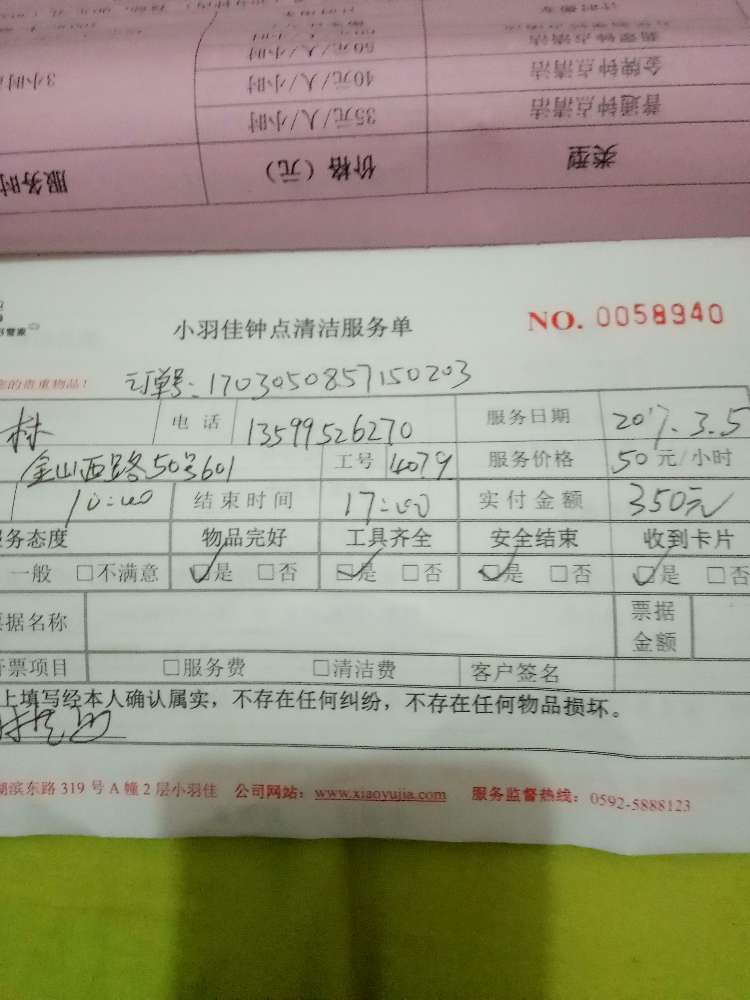 计时服务
翡翠钟点清洁 50元/人/小时
金牌钟点清洁 40元/人/小时 3小时
普通钟点清洁 35元/人/小时
类型 价格（元） 服务时
小羽佳钟点清洁服务单 NO. 0058940
您的贵重物品！ 订单号：1703050857150203
林 电话 13599526270 服务日期 2017.3.5
金山西路50号601 工号 4079 服务价格 50元/小时
10:00 结束时间 17:00 实付金额 350元
务态度 物品完好 工具齐全 安全结束 收到卡片
一般 □不满意 ☑是 □否 ☑是 □否 ☑是 □否 ☑是 □否
票据名称 票据金额
开票项目 □服务费 □清洁费 客户签名
上填写经本人确认属实，不存在任何纠纷，不存在任何物品损坏。
湖滨东路 319 号 A 幢 2 层小羽佳 公司网站：www.xiaoyujia.com 服务监督热线：0592-5888123